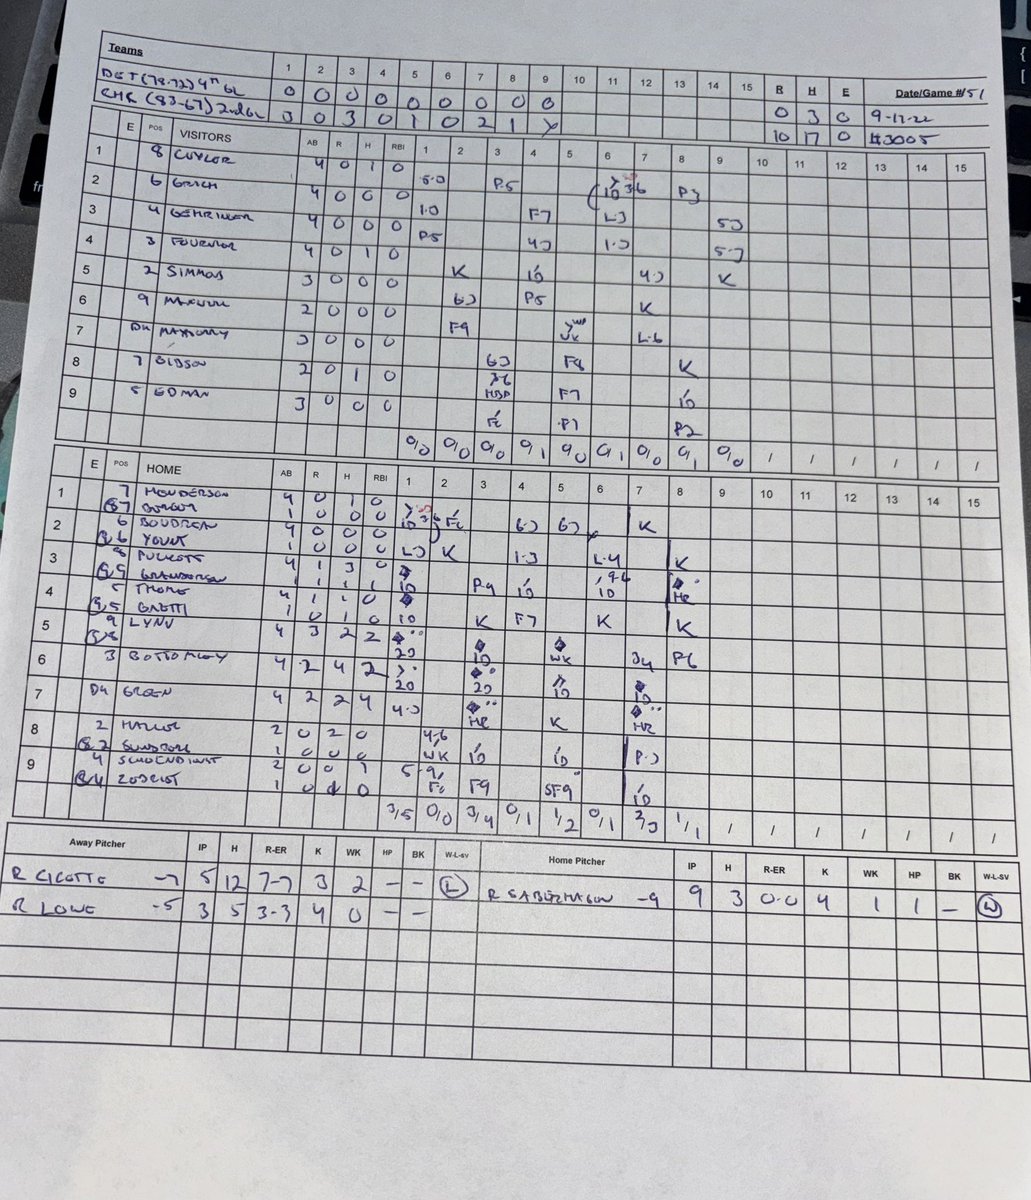 Teams 1 2 3 4 5 6 7 8 9 10 11 12 13 14 15 R H E Date/Game #151
DET (78-72) 4th GL 0 0 0 0 0 0 0 0 0 0 3 0 9-17-22
CHR (83-67) 2nd GL 3 0 3 0 1 0 2 1 X 10 17 0 #3005
E POS VISITORS AB R H RBI 1 2 3 4 5 6 7 8 9 10 11 12 13 14 15
1 8 CUYLER 4 0 1 0 5-3 P5 10 36 P3
2 6 4 0 0 0 1-3 F7 L3 53
3 4 GEHRINGER 4 0 0 0 P5 43 1-3 5-3
4 3 FOURNIER 4 0 1 0 K 10 43 K
5 2 SIMMONS 3 0 0 0 63 P5 K
6 9 2 0 0 0 F9 WK L-6
7 DH 3 0 0 0 63 F8 K
8 7 GIBSON 2 0 1 0 36 HBP F7 10
9 5 EDMAN 3 0 0 0 P7 P2
0/0 0/0 0/0 0/1 0/0 0/1 0/0 0/1 0/0 / / / / / /
E POS HOME AB R H RBI 1 2 3 4 5 6 7 8 9 10 11 12 13 14 15
1 7 HENDERSON 4 0 1 0 10 36 6-3 63 K
8,7 1 0 0 0
2 6 BOUDREAU 4 0 0 0 L3 K 1-3 L-4 K
8,6 YOUNT 1 0 0 0
3 8 PUCKETT 4 1 3 0 10 P4 10 10 HR
8,9 GRANDERSON 1 1 1 1
4 5 THOME 4 1 1 0 10 K F7 K K
8,5 BRETT 1 0 1 0
5 9 LYNN 4 3 2 2 20 10 WK 34 P6
8,8
6 3 BOTTOMLEY 4 2 4 2 20 20 10 10
7 DH GREEN 4 2 2 4 4-3 HR K HR
8 2 2 0 2 0 4,6 WK 10 10 P-3
8,2 SUNDBERG 1 0 0 0
9 4 SCHOENDIENST 2 0 0 1 F9 SF9 10
8,4 ZOBRIST 1 0 1 0
3/5 0/0 3/4 0/1 1/2 0/1 2/3 1/1 / / / / / / /
Away Pitcher IP H R-ER K WK HP BK W-L-SV Home Pitcher IP H R-ER K WK HP BK W-L-SV
R CICOTTE -7 5 12 7-7 3 2 - - L R SABERHAGEN -9 9 3 0-0 4 1 1 - W
R LOWE -5 3 5 3-3 4 0 - -